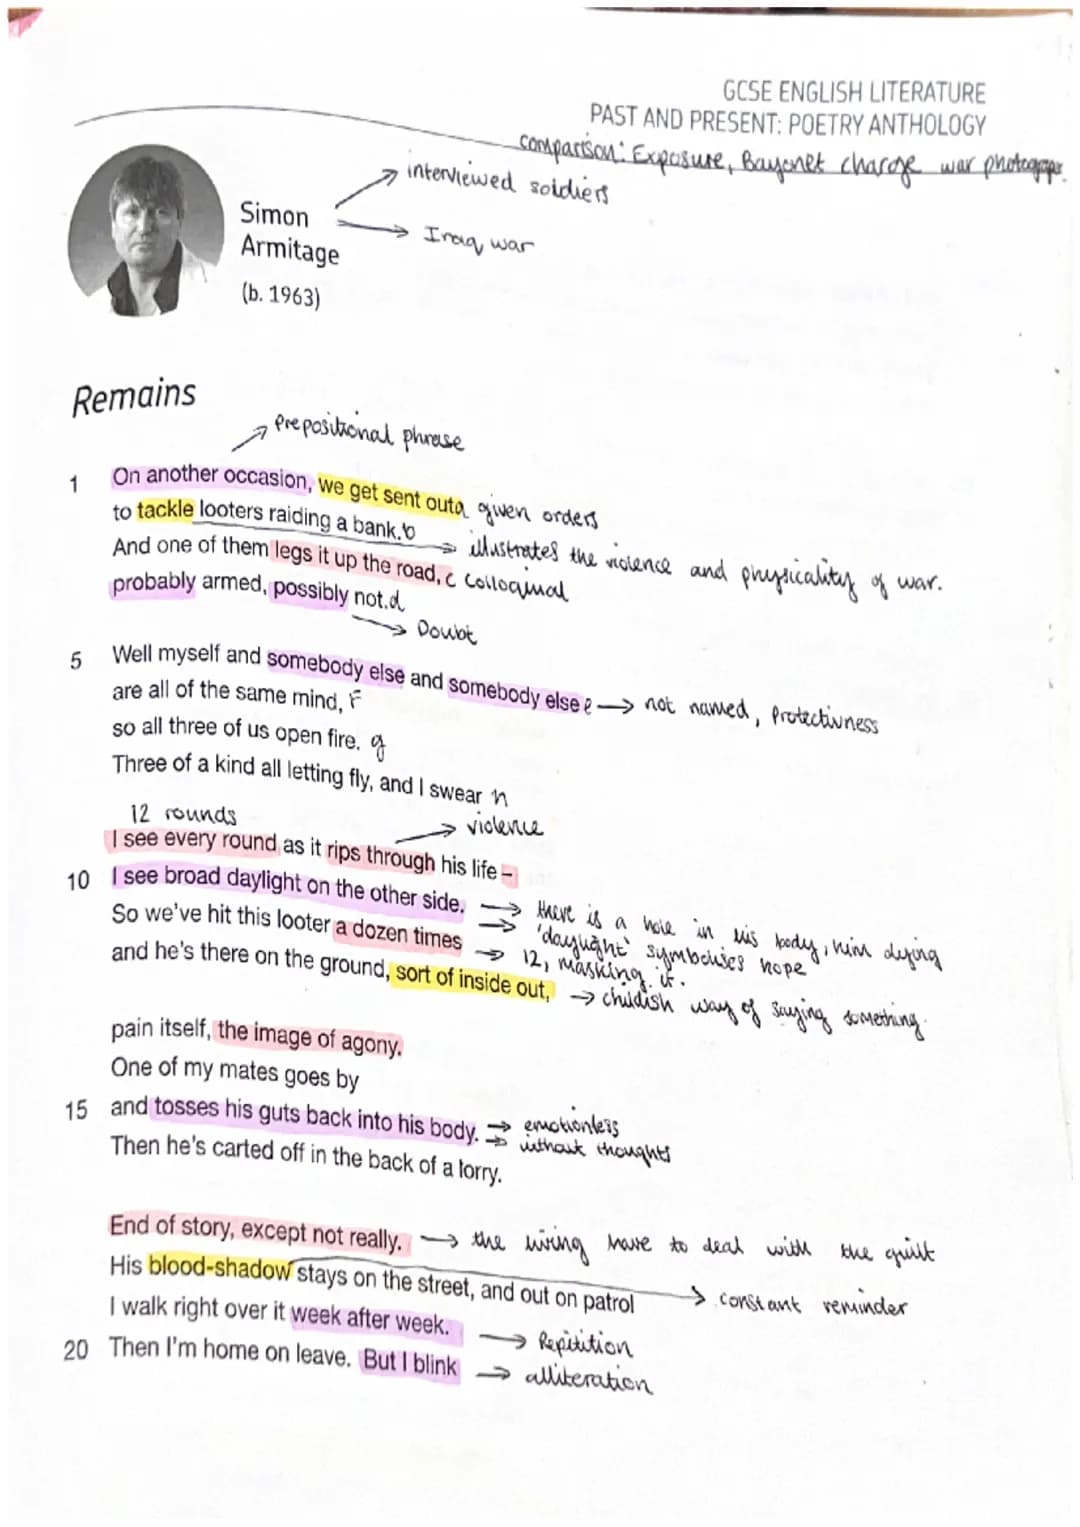 GCSE ENGLISH LITERATURE
PAST AND PRESENT: POETRY ANTHOLOGY
comparison: Exposure, Bayonet charge war photograper
interviewed soldiers
Simon
Armitage
Iraq war
(b. 1963)
Remains
Prepositional phrase
1 On another occasion, we get sent out a given orders
to tackle looters raiding a bank. b
illustrates the violence and physicality of war.
And one of them legs it up the road, c Colloquial
probably armed, possibly not. d
Doubt
5 Well myself and somebody else and somebody else e not named, Protectivness
are all of the same mind, F
so all three of us open fire. g
Three of a kind all letting fly, and I swear h
12 rounds
violence
I see every round as it rips through his life –
10 I see broad daylight on the other side. there is a hole in his body, him dying
'daylight' symbolises hope
So we've hit this looter a dozen times 12, masking it.
and he's there on the ground, sort of inside out, childish way of saying something.
pain itself, the image of agony.
One of my mates goes by
15 and tosses his guts back into his body. emotionless
without thoughts
Then he's carted off in the back of a lorry.
End of story, except not really. the living have to deal with the guilt
His blood-shadow stays on the street, and out on patrol constant reminder
I walk right over it week after week. Repitition
20 Then I'm home on leave. But I blink alliteration